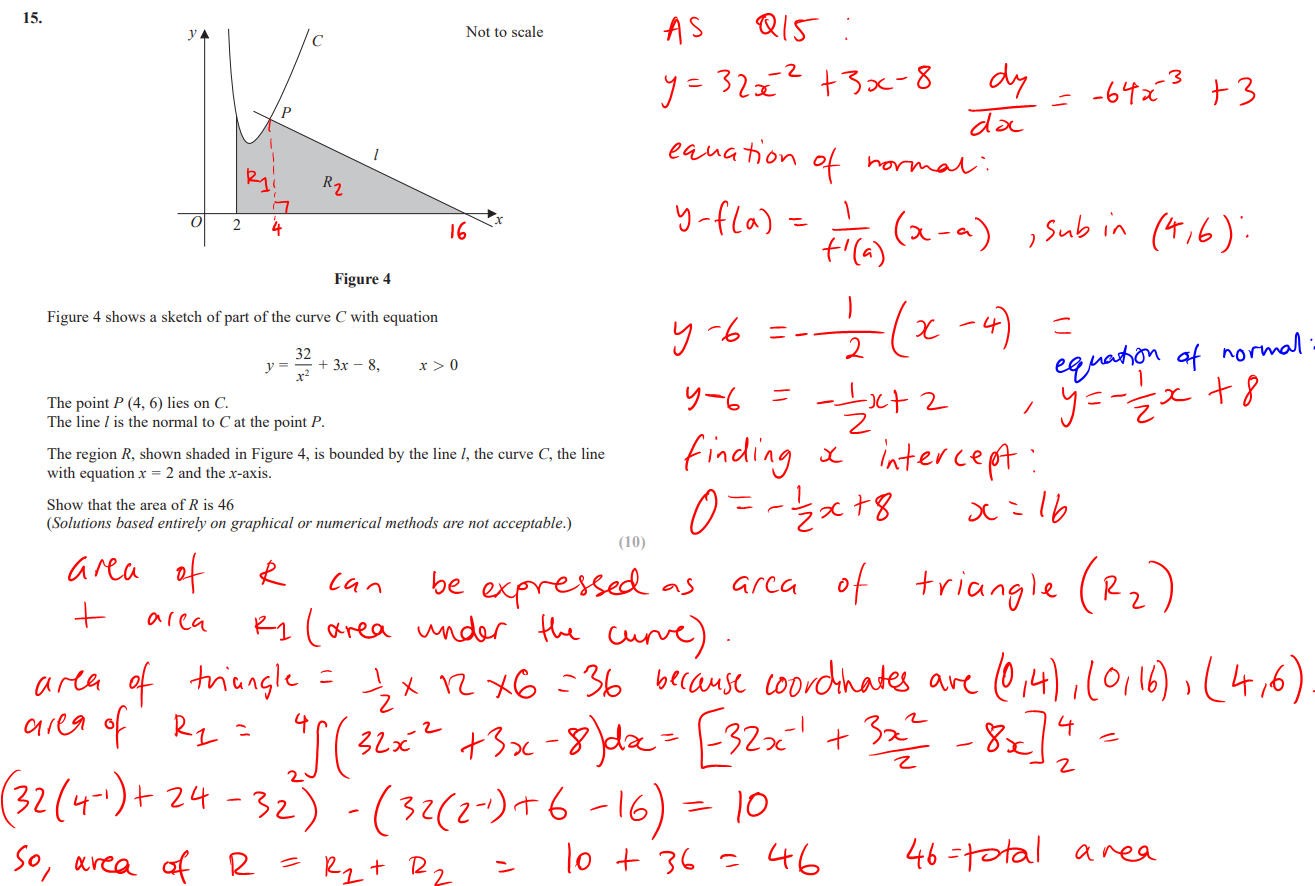 15.
Not to scale
y
C
P
l
R1
R2
O
2
4
16
x
Figure 4
Figure 4 shows a sketch of part of the curve C with equation
y = 32/x² + 3x − 8,    x > 0
The point P (4, 6) lies on C.
The line l is the normal to C at the point P.
The region R, shown shaded in Figure 4, is bounded by the line l, the curve C, the line
with equation x = 2 and the x-axis.
Show that the area of R is 46
(Solutions based entirely on graphical or numerical methods are not acceptable.)
(10)
AS Q15 :
y = 32x⁻² + 3x − 8    dy/dx = −64x⁻³ + 3
equation of normal:
y−f(a) = 1/f'(a) (x−a) , sub in (4,6):
y −6 = −1/2 (x −4) =
equation of normal:
y−6 = −1/2x + 2 , y = −1/2x + 8
finding x intercept:
0 = −1/2x + 8    x = 16
area of R can be expressed as area of triangle (R2)
+ area R1 (area under the curve).
area of triangle = 1/2 × 12 × 6 = 36 because coordinates are (0,4), (0,16), (4,6).
area of R1 = ₂⁴∫(32x⁻² + 3x − 8)dx = [−32x⁻¹ + 3x²/2 − 8x]⁴₂ =
(32(4⁻¹) + 24 − 32) − (32(2⁻¹) + 6 − 16) = 10
So, area of R = R1 + R2 = 10 + 36 = 46    46 = total area